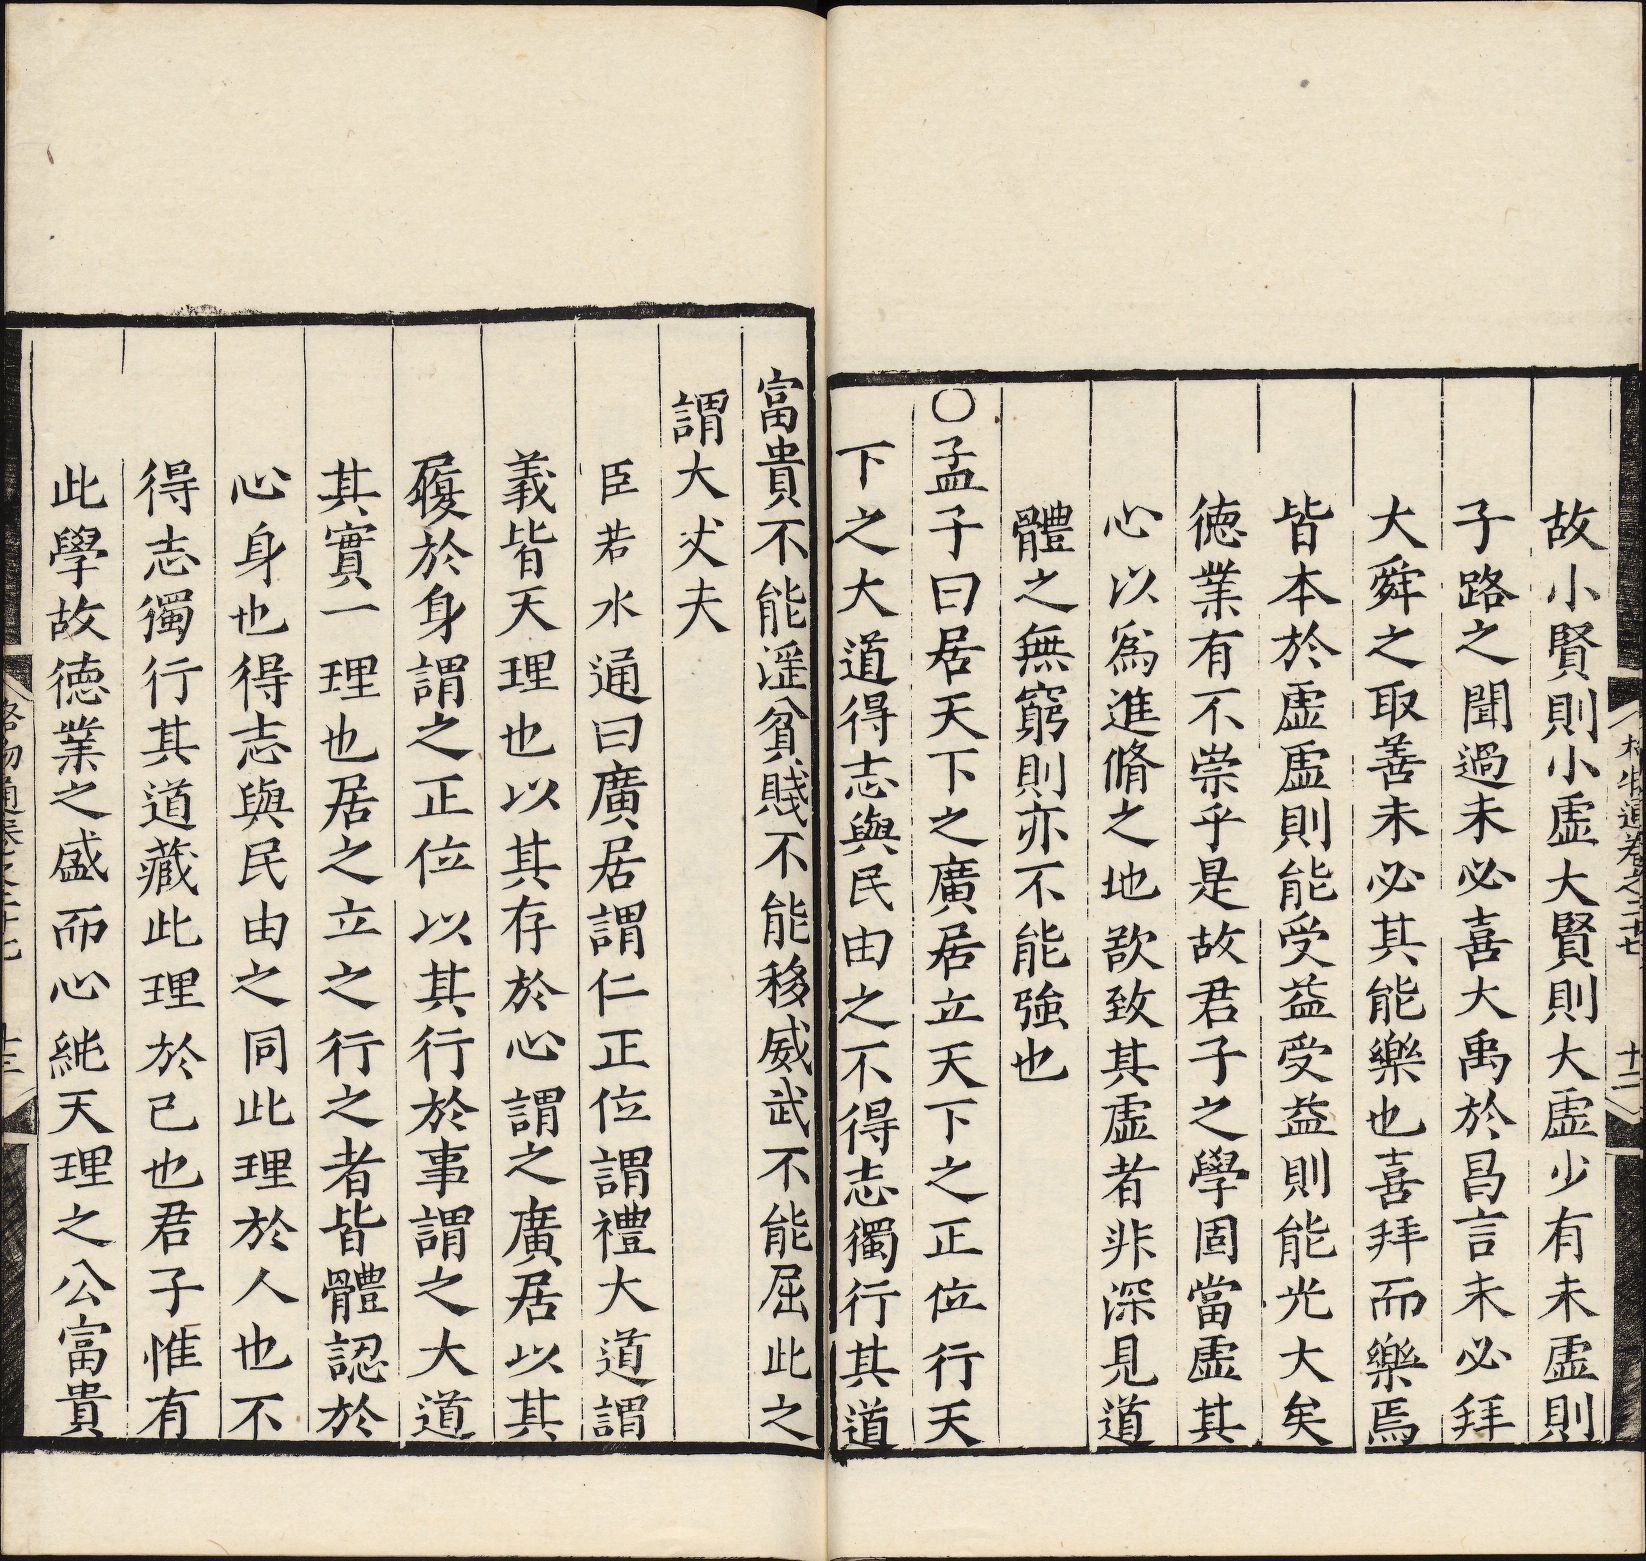 故小賢則小虛大賢則大虛少有未虛則
子路之聞過未必喜大禹於昌言未必拜
大舜之取善未必其能樂也喜拜而樂焉
皆本於虛虛則能受益受益則能光大矣
德業有不崇乎是故君子之學固當虛其
心以爲進脩之地欲致其虛者非深見道
體之無窮則亦不能強也
〇孟子曰居天下之廣居立天下之正位行天
下之大道得志與民由之不得志獨行其道
富貴不能滛貧賤不能移威武不能屈此之
謂大丈夫
臣若水通曰廣居謂仁正位謂禮大道謂
義皆天理也以其存於心謂之廣居以其
履於身謂之正位以其行於事謂之大道
其實一理也居之立之行之者皆體認於
心身也得志與民由之同此理於人也不
得志獨行其道藏此理於己也君子惟有
此學故德業之盛而心純天理之公富貴
格物通卷之二十七
十二
格物通卷之二十七
十三